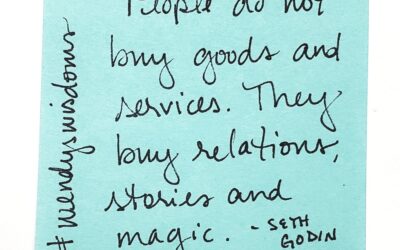 People do not
buy goods and
services. They
buy relations,
stories and
magic. - SETH
GODIN
#wendyswisdoms